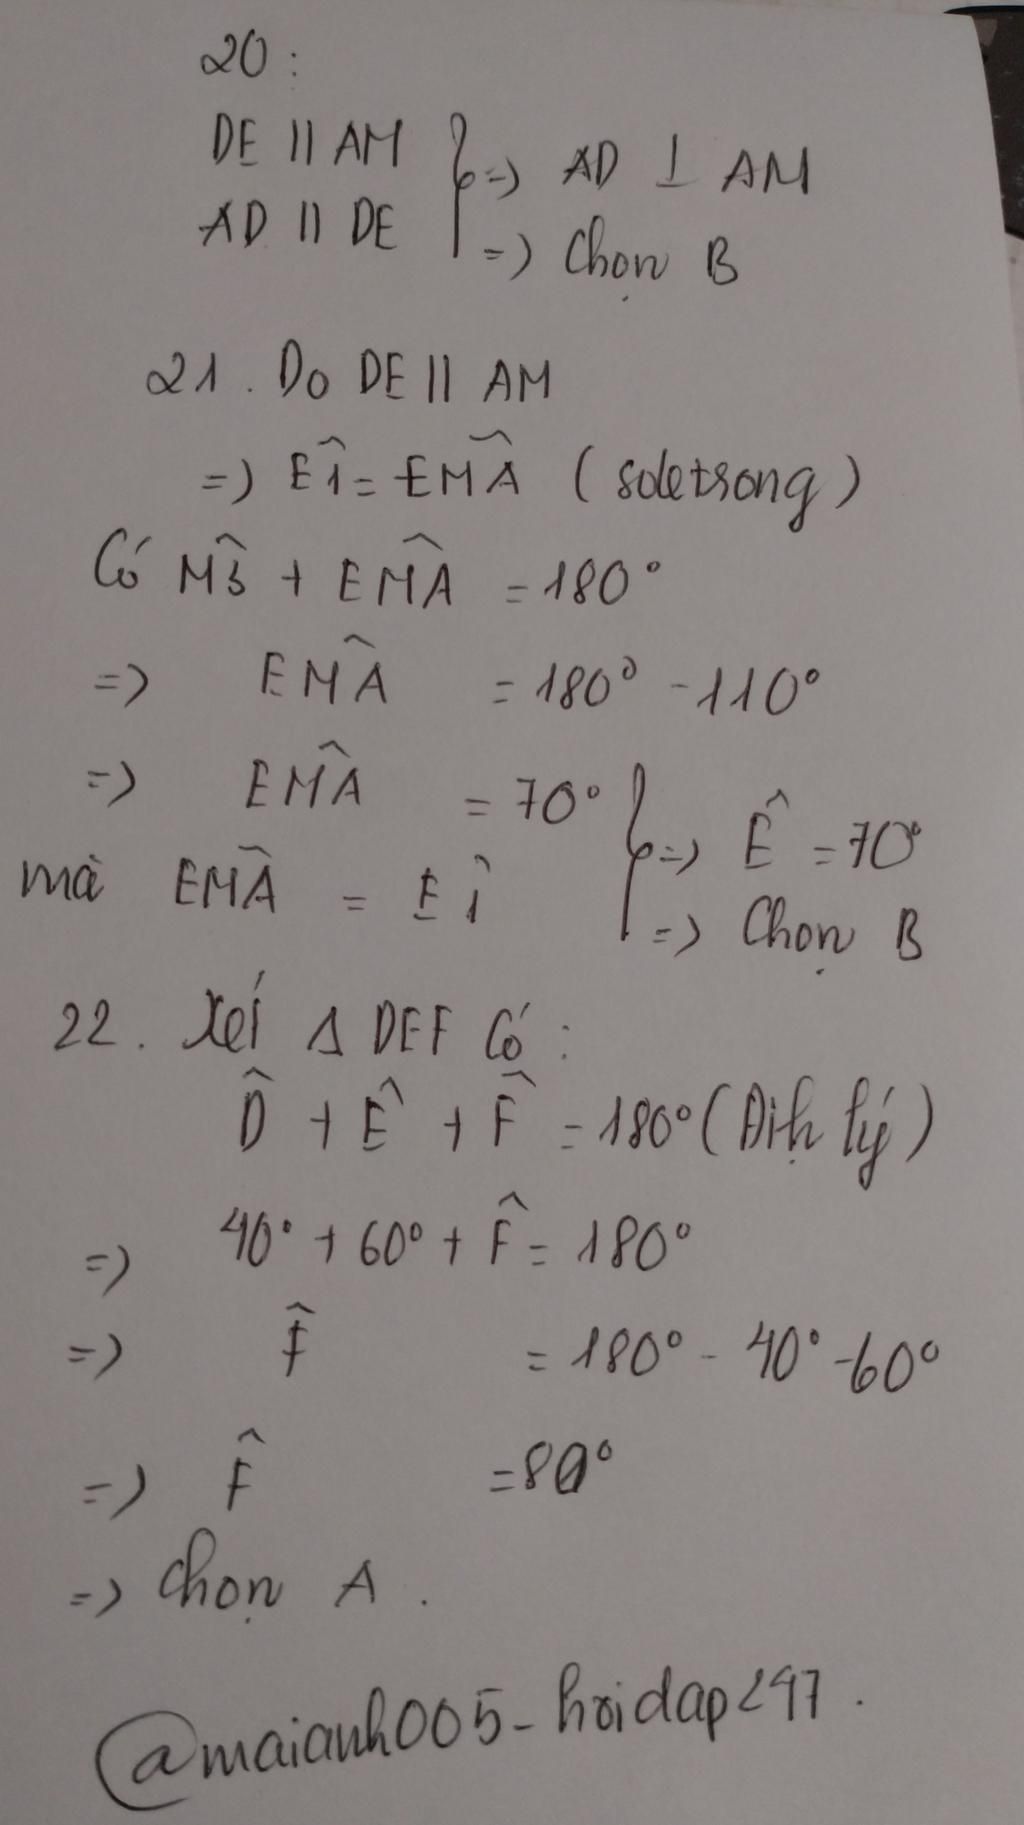 20:
DE || AM } => AD ⊥ AM
AD || DE } => Chọn B
21. Do DE || AM
=> Ê1 = EMÂ (soletrong)
Có M̂3 + EM̂A = 180°
=> EM̂A = 180° - 110°
=> EM̂A = 70° } => Ê = 70°
mà EM̂A = Ê1 } => Chọn B
22. Xét Δ DEF Có:
D̂ + Ê + F̂ = 180° (Định lý)
=> 40° + 60° + F̂ = 180°
=> F̂ = 180° - 40° - 60°
=> F̂ = 80°
=> Chọn A.
@maianh005_hoidap247.